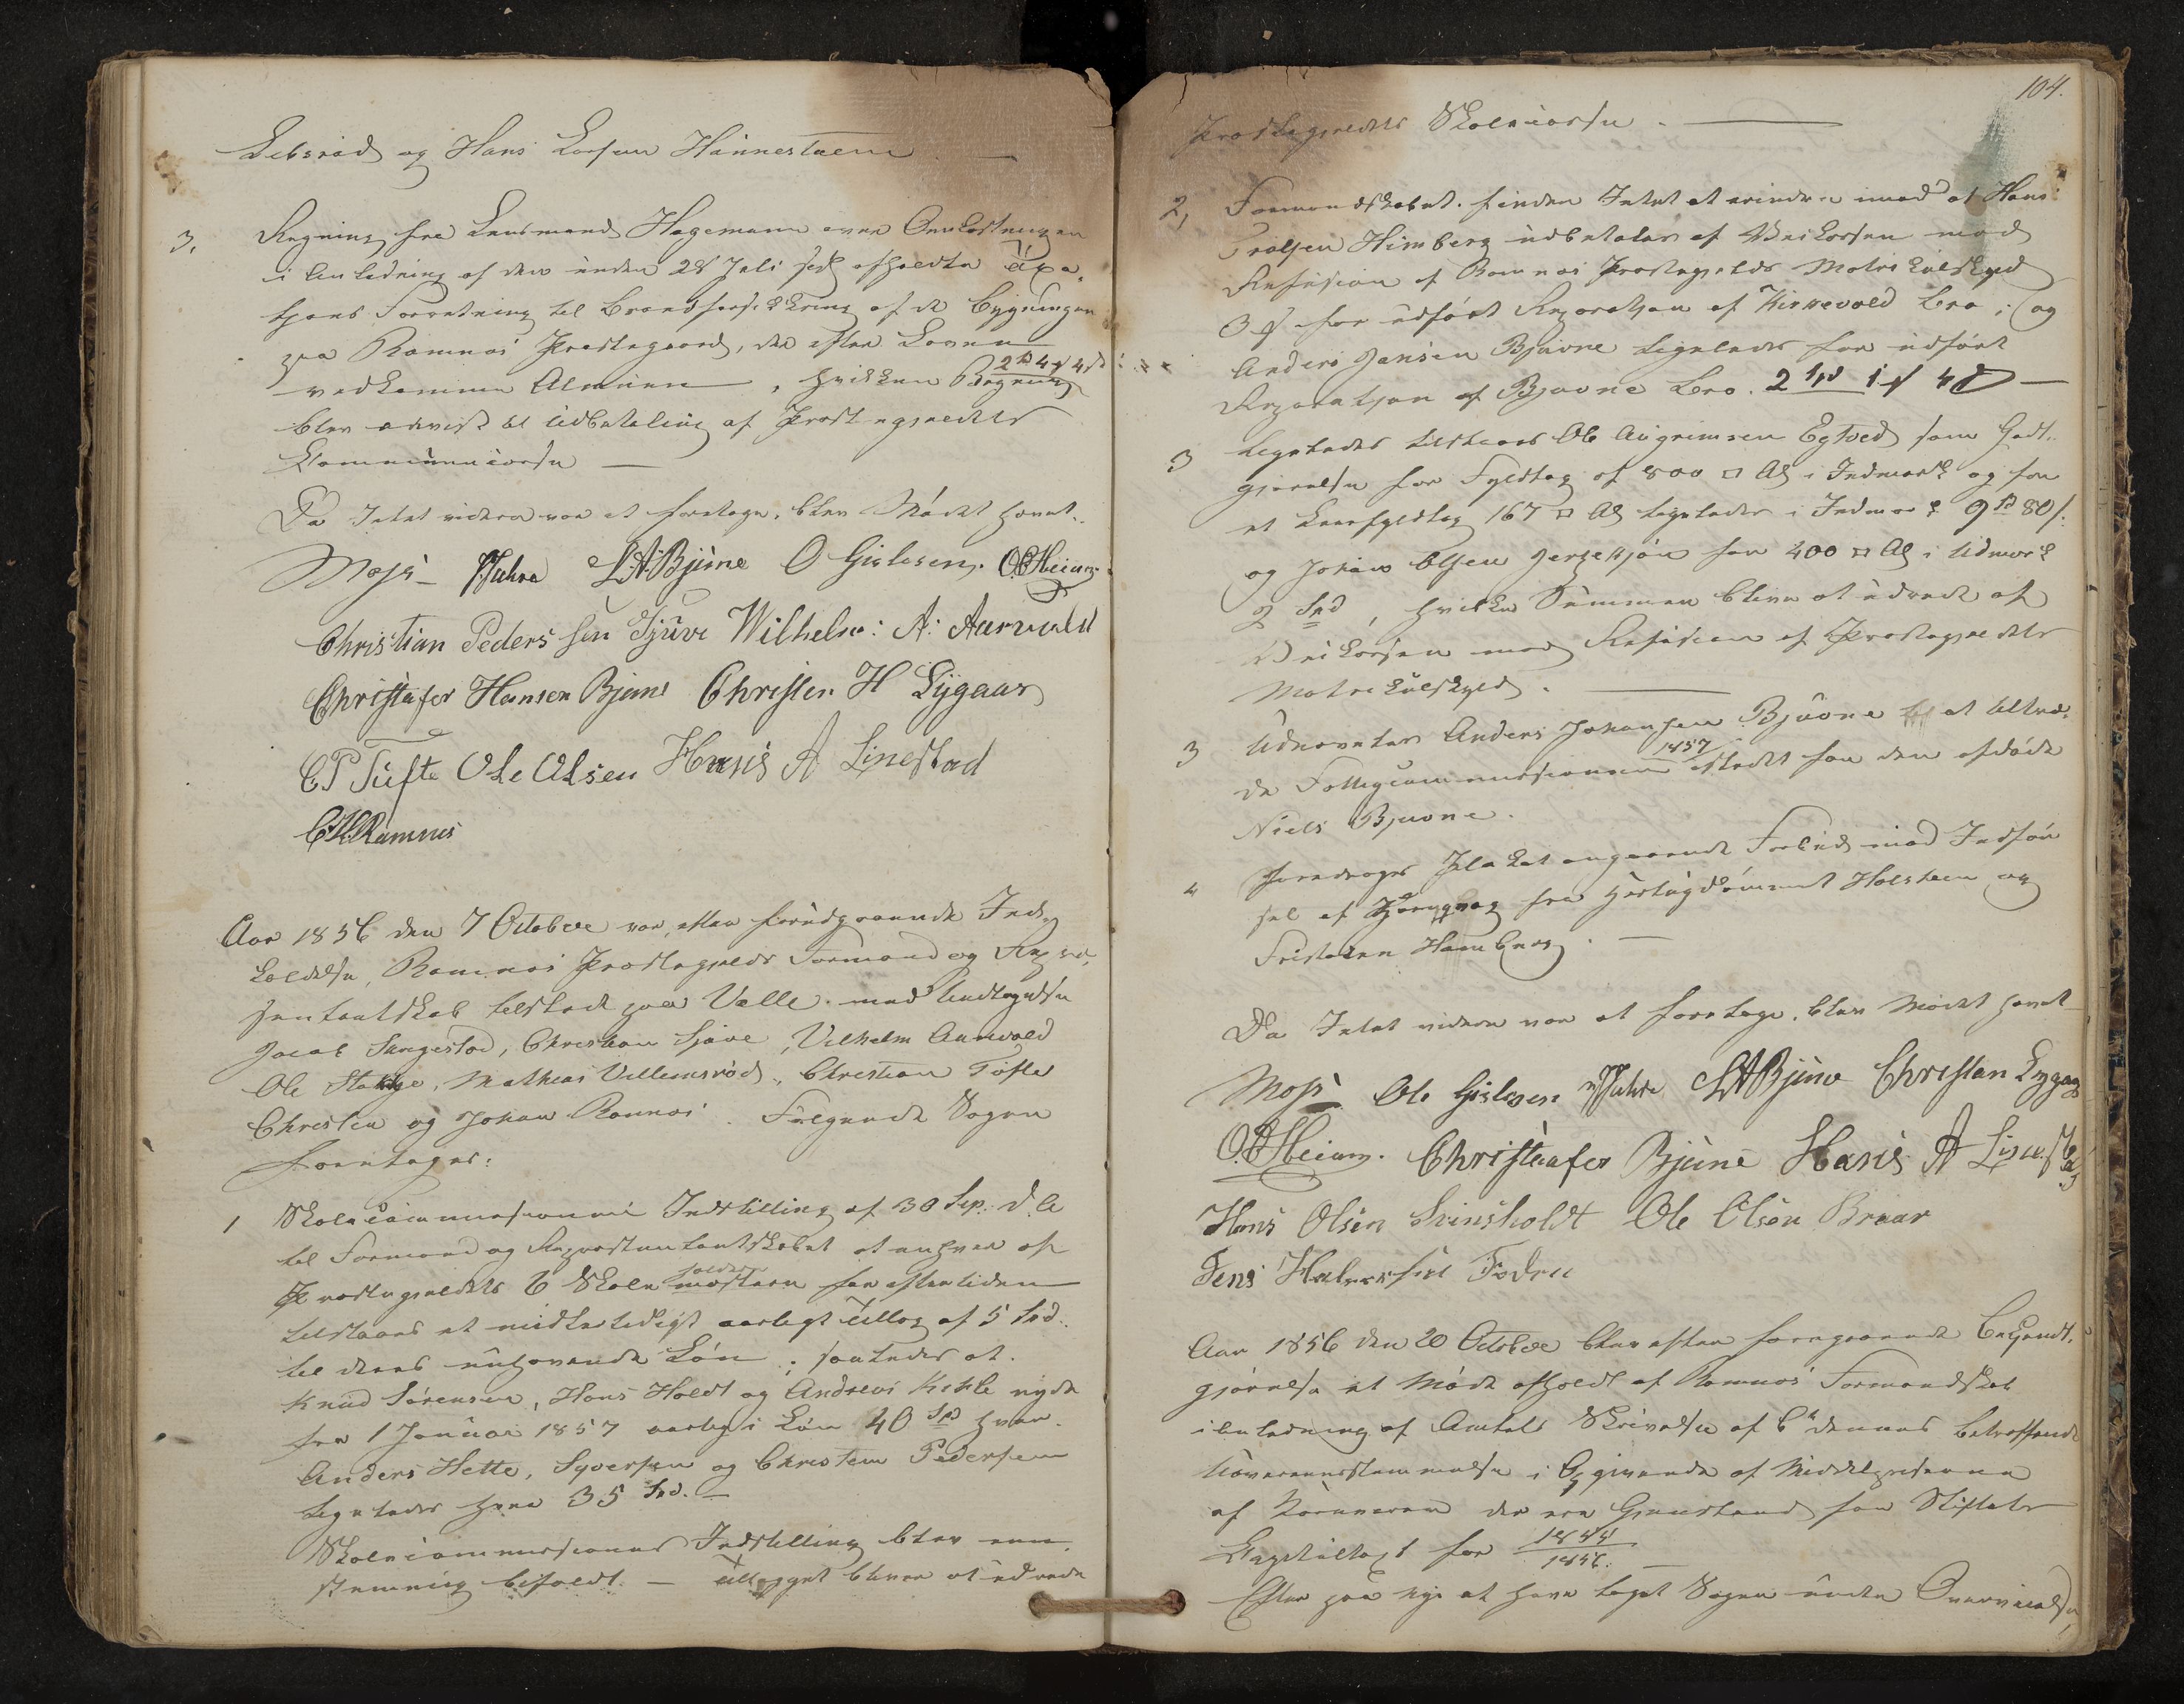 Lebsrød og Hans Larsen Hannestuen.
3. Regning fra Lensmand Hagemann over Omkostningen
i Anledning af den under 28 Juli sidst afholdte Taxa-
tions Forretning til Brandforsikkring af de Bygninger
paa Ramnæs Præstegaard, der efter Loven
vedkomme Almuen, hvilken Regning 2 Sp 4 # 4 s
blev anvist til Udbetaling af Præstegjeldets
Kommunecasse —
Da Intet videre var at foretage, blev Mødet hævet.
Moss JFuhre LABjune O Gislesen. OBHeian
Christian Pederssen Sjuve Wilhelm: A: Aurvald
Christafer Hansen Bjune Christen H Lygaar
C.P Tufte Ole Olsen Hans A Linestad
CHRamnes
Aar 1856 den 7 October var, efter forudgaaende Ind-
kaldelse, Ramnæs Præstegjelds Formand og Repræ-
sentantskab tilstede paa Valle med Undtagelse
Jacob Langestad, Christian Sjuve, Vilhelm Aurvald
Ole Stange, Mathias Villumsrød, Christian Tufte
Christen og Johan Ramnæs. Følgende Sager
foretages:
1 Skolecommissionens Indstilling af 30 Sep. d. A
til Formand og Repræsentantskabet at enhver af
Præstegjeldets 6 Skoleholdere for eftertiden
tilstaaes et midlertidigt aarligt Tillæg af 5 Spd.
til deres nuhavende Løn; saaledes at
Knud Sørensen, Hans Holdt og Andreas Kihle nyde
fra 1 Januar 1857 aarlig i Løn 40 Spd hver.
Anders Hette, Syversen og Christen Pedersen
ligeledes hver 35 Spd. —
Skolecommissionens Indstilling blev een-
stemmig bifaldt. — Tillægget bliver at udrede
104.
Præstegjeldets Skolecasse. —
2, Formandskabet finder Intet at erindre imod at Hans
Trolsen Himberg udbetales af Veikassen mod
Refusion af Ramnæs Præstegjelds Matrikulskyld
3 # for udført Reparation af Kirkevold bro; og
Anders Jansen Bjuvne ligeledes for udført
Reparation af Bjuvne bro. 2 Spd 1 # 4 s —
3 Ligeledes tilstaaes Ole Augrimsen Egtved som Godt-
gjørelse for Fyldtag af 800 □ Al i Indmark og for
et Leerfyldtag 167 □ Al ligeledes i Indmark 9 Sp 80 s.
og Johan Olsen for 400 □ Al i Udmark
2 Spd, hvilke Summer blive at udrede af
Veikassen mod Refusion af Præstegjeldets
Matrikulskyld. —
3 Udnævntes Anders Johansen Bjuvne at tiltræ-
de Fattigcommissionen 1857 istedet for den afdøde
Niels Bjuvne.
4 Foredroges Plakat angaaende Forbud mod Indfør-
sel af Hornqvæg fra Hertugdømmet Holsteen og
Fristaden Hamburg. —
Da Intet videre var at foretage, blev Mødet hævet
Moss Ole Gislesen JFuhre LABjune Christen Lygaar
OBHeian. Christaafer Bjune Hans A Linestad
Hans Olsen Svinsholdt Ole Olsen Braar
Jens Halvorsen Foden
Aar 1856 den 20 October blev efter foregaaende Bekjendt-
gjørelse et Møde afholdt af Ramnæs Formandskab
i Anledning af Amtets Skrivelse af 6te dennes betræffende
Uoverensstemmelse i Opgivende af Middelpriserne
af Kornvarer der ere Gjenstand for Stiftets
Kapiteltaxt for 1844/1856. —
Efter paa nye at have taget Sagen under Overveielse,